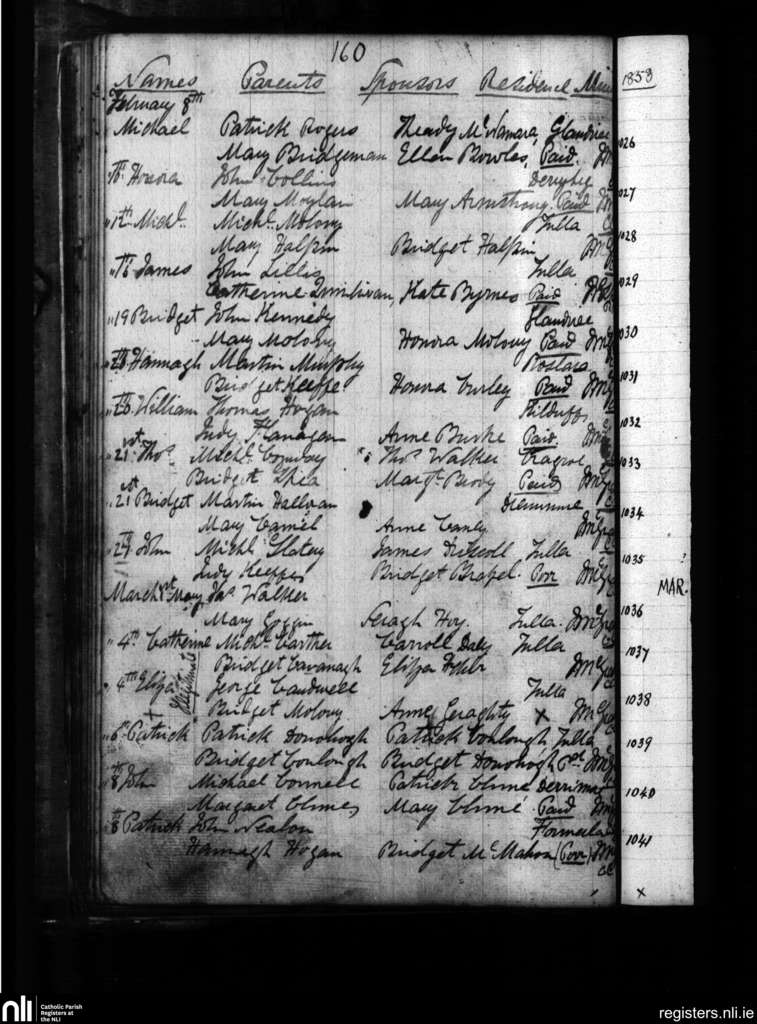 160
Names Parents Sponsors Residence
1853
February 8th
Michael Patrick Rogers Thady McNamara, Glandree
Mary Bridgeman Ellen Bowles, Paid.
1026
10th Honora John Collins
Mary Moylan Mary Armstrong Paid
1027
" 12th Michl. Michl. Molony Tulla
Mary Halpin Bridget Halpin
1028
" James John Lillis Tulla
Catherine Quinlivan, Kate Byrnes Paid
1029
" 19 Bridget John Kennedy Glandree
Mary Molony Honora Molony Paid
1030
20th Hannagh Martin Murphy
Bridget Keeffe Honora Curley Paid
1031
William Thomas Hogan Kilduff
Judy Flanagan Anne Burke Paid.
1032
21st Thos. Michl. Conway Thos. Walker
Bridget Shea Margt. Brody Paid
1033
21st Bridget Martin Halloran
Mary Anne Canly
1034
John Michl. Slatery James Driscoll Tulla
Judy Keeffe Bridget Poor
1035
March 1st Mary Jas. Walker
Mary Goggin Seragh Hoy. Tulla.
1036
MAR.
" 4th Catherine Michl. Carther Carroll Daly Tulla
Bridget Cavanagh
1037
" 4th Eliza Illegitimate George Caudwell Tulla
x Bridget Molony Anne Geraghty x
1038
" 6th Patrick Patrick Donohogh Patrick Conlongh Tulla
Bridget Conlongh Bridget Donohogh
1039
8th John Michael Connell Patrick Clune
Margaret Clune Mary Clune Paid
1040
8th Patrick John Nealon
Hannagh Hogan Bridget McMahon (Poor)
1041
x
nli
Catholic Parish
Registers at
the NLI
registers.nli.ie